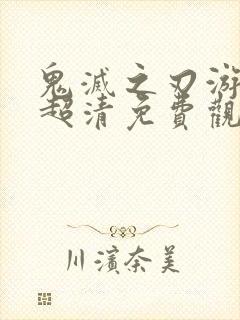 鬼滅之刃游
超清免費觀
川濱奈美